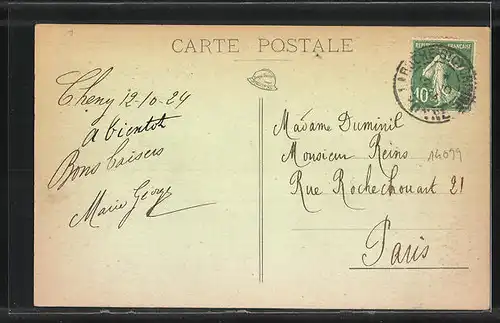 CARTE POSTALE
REPUBLIQUE FRANÇAISE
10c
Cheny 12-10-24
A bientôt
Bons baisers
Marie George
Madame Duminil
Monsieur Reins
14099
Rue Rochechouart 21
Paris